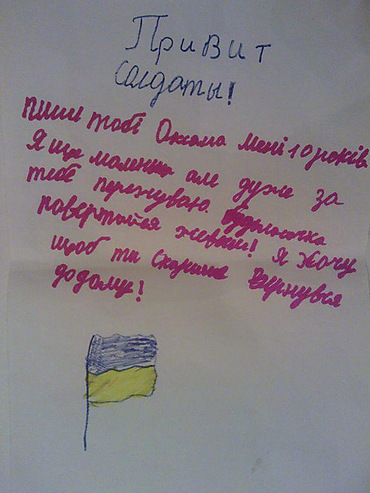 Привит
солдаты!
пише тобі Оксана мені 10 років
Я ще маленька але дуже за
тебе переживаю. будласочка
повертайся живим! Я хочу
щоб ти скоріше вернувся
додому!